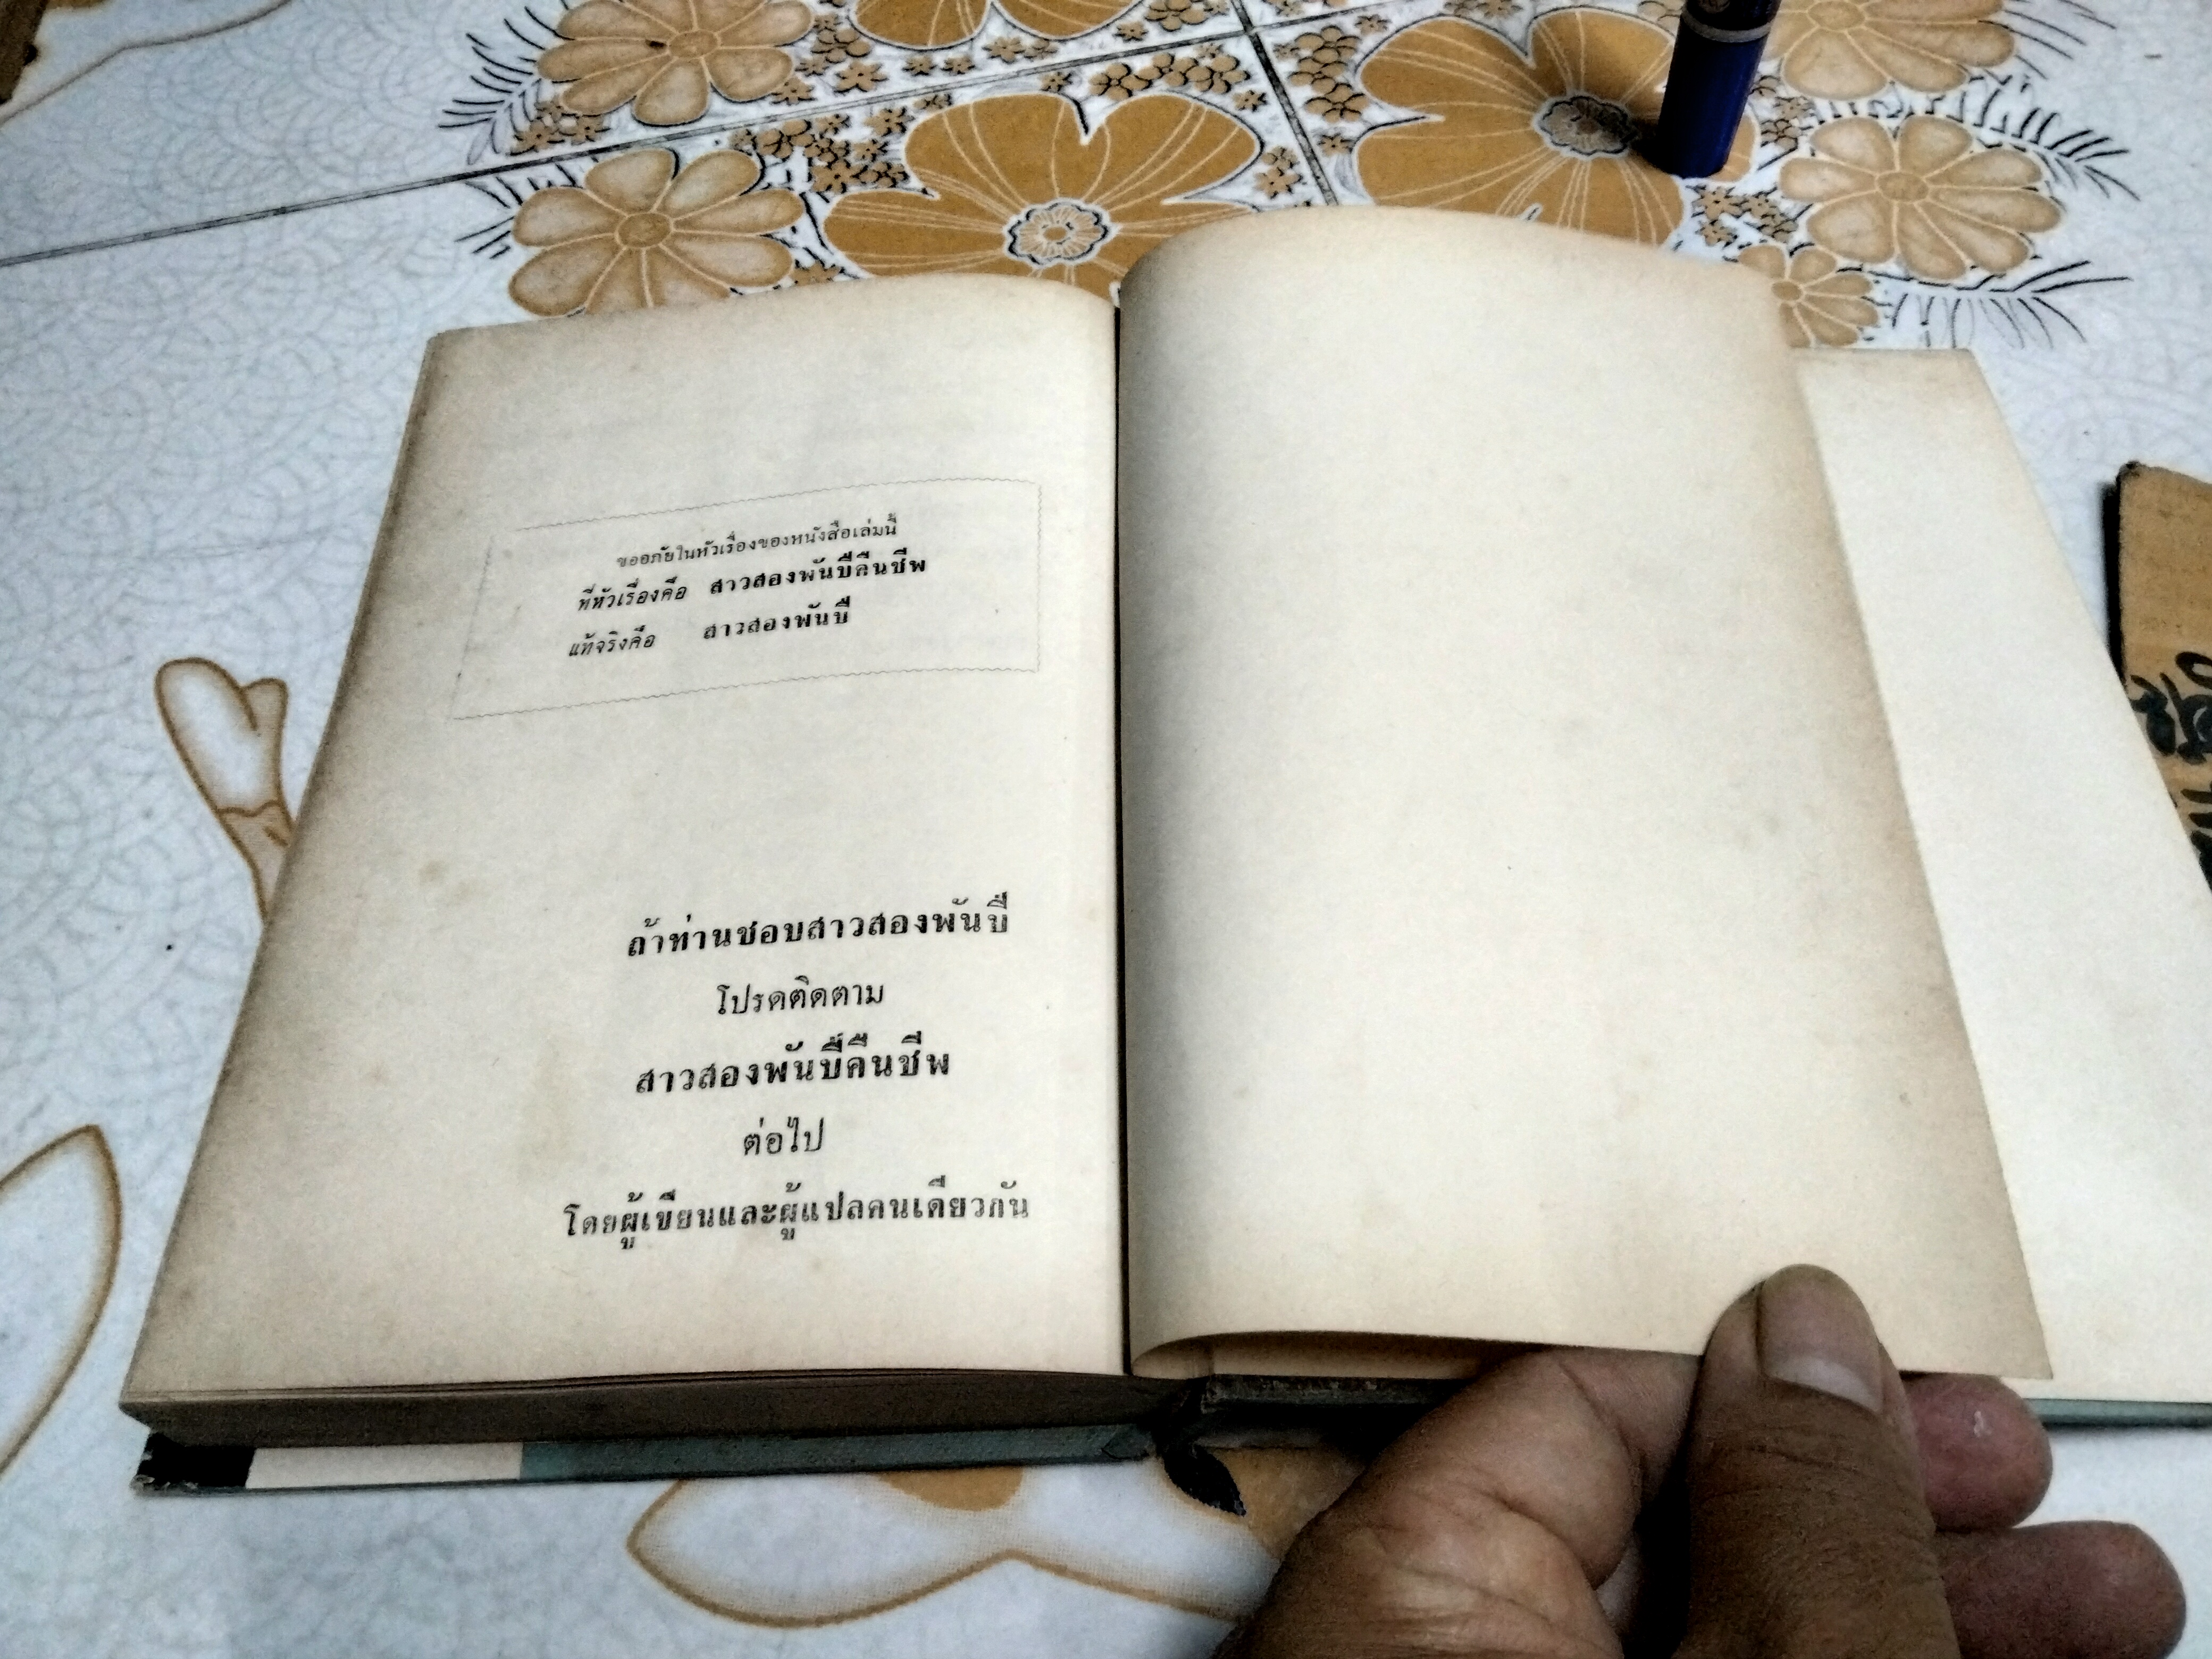 ขออภัยในหัวเรื่องของหนังสือเล่มนี้
ที่หัวเรื่องคือ สาวสองพันปีคืนชีพ
แท้จริงคือ สาวสองพันปี
ถ้าท่านชอบสาวสองพันปี
โปรดติดตาม
สาวสองพันปีคืนชีพ
ต่อไป
โดยผู้เขียนและผู้แปลคนเดียวกัน